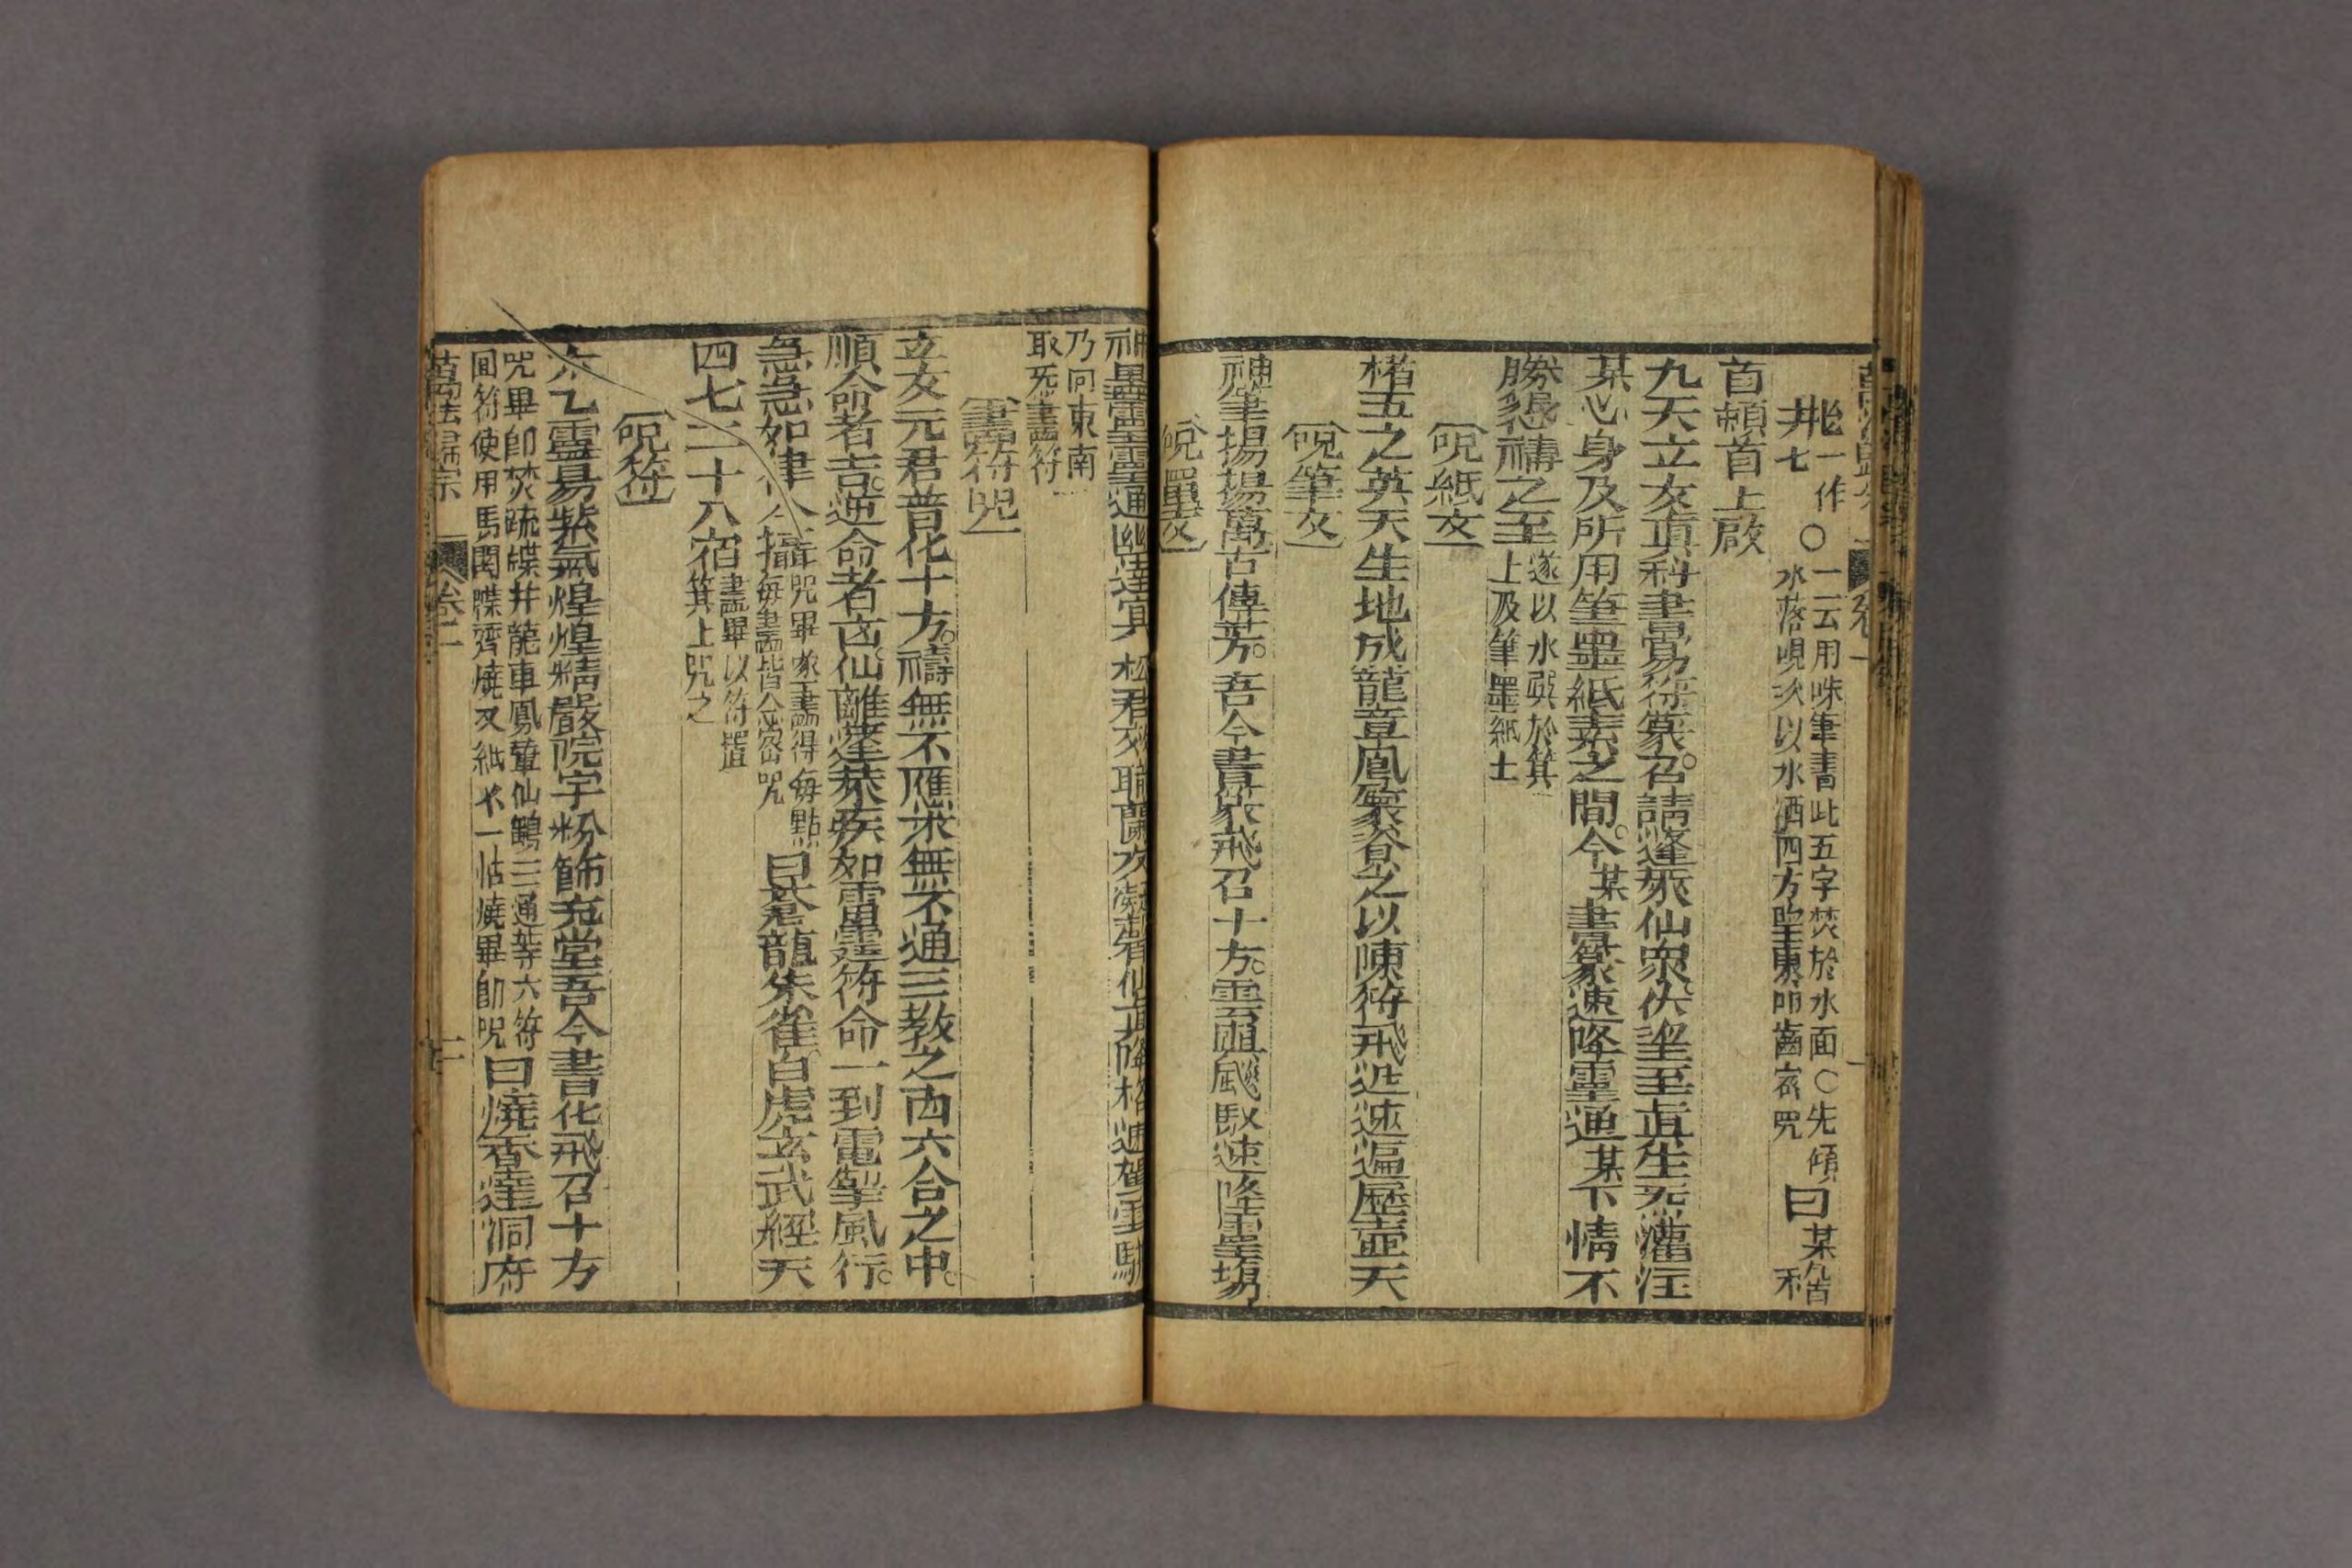 一作
井七
○一云用硃筆書此五字焚於水面○先傾
水落唄次以水洒四方望東叩齒密咒
曰某稽
首頓首上啟
九天玄女真科書易符篆召請蓬萊仙眾伏望至真生炁灌注
某心身及所用筆墨紙素之間今某書篆速降靈通某下情不
勝懇禱之至遂以水噀於箕
上及筆墨紙上
呪紙文
楮玉之英天生地成龍章鳳篆資之以陳符飛迅速遍歷壺天
呪筆文
神筆揚揚萬古傳芳吾今書篆飛召十方雲颿飈馭速降壇場
呪墨文
神墨靈靈通幽達冥松君效職蘭友凝馨仙真降格速駕雲軿
乃向東南
取炁書符
書符咒
玄女元君普化十方禱無不應求無不通三教之內六合之中
順命者吉逆命者凶仙離蓬萊疾如雷霆符命一到電掣風行
急急如律令攝咒畢遂書得每點
每畫皆念密咒
曰蒼龍朱雀白虎玄武經天
四七二十八宿書畢以符置
箕上咒之
呪符
太乙靈易紫氣煌煌精嚴院宇粉飾充堂吾今書化飛召十方
咒畢即焚疏牒井龍車鳳輦仙鶴三通等六符
圓符使用馬関牒齊燒又紙一帖燒畢即咒
曰燒香達洞府
萬法歸宗
卷二
二